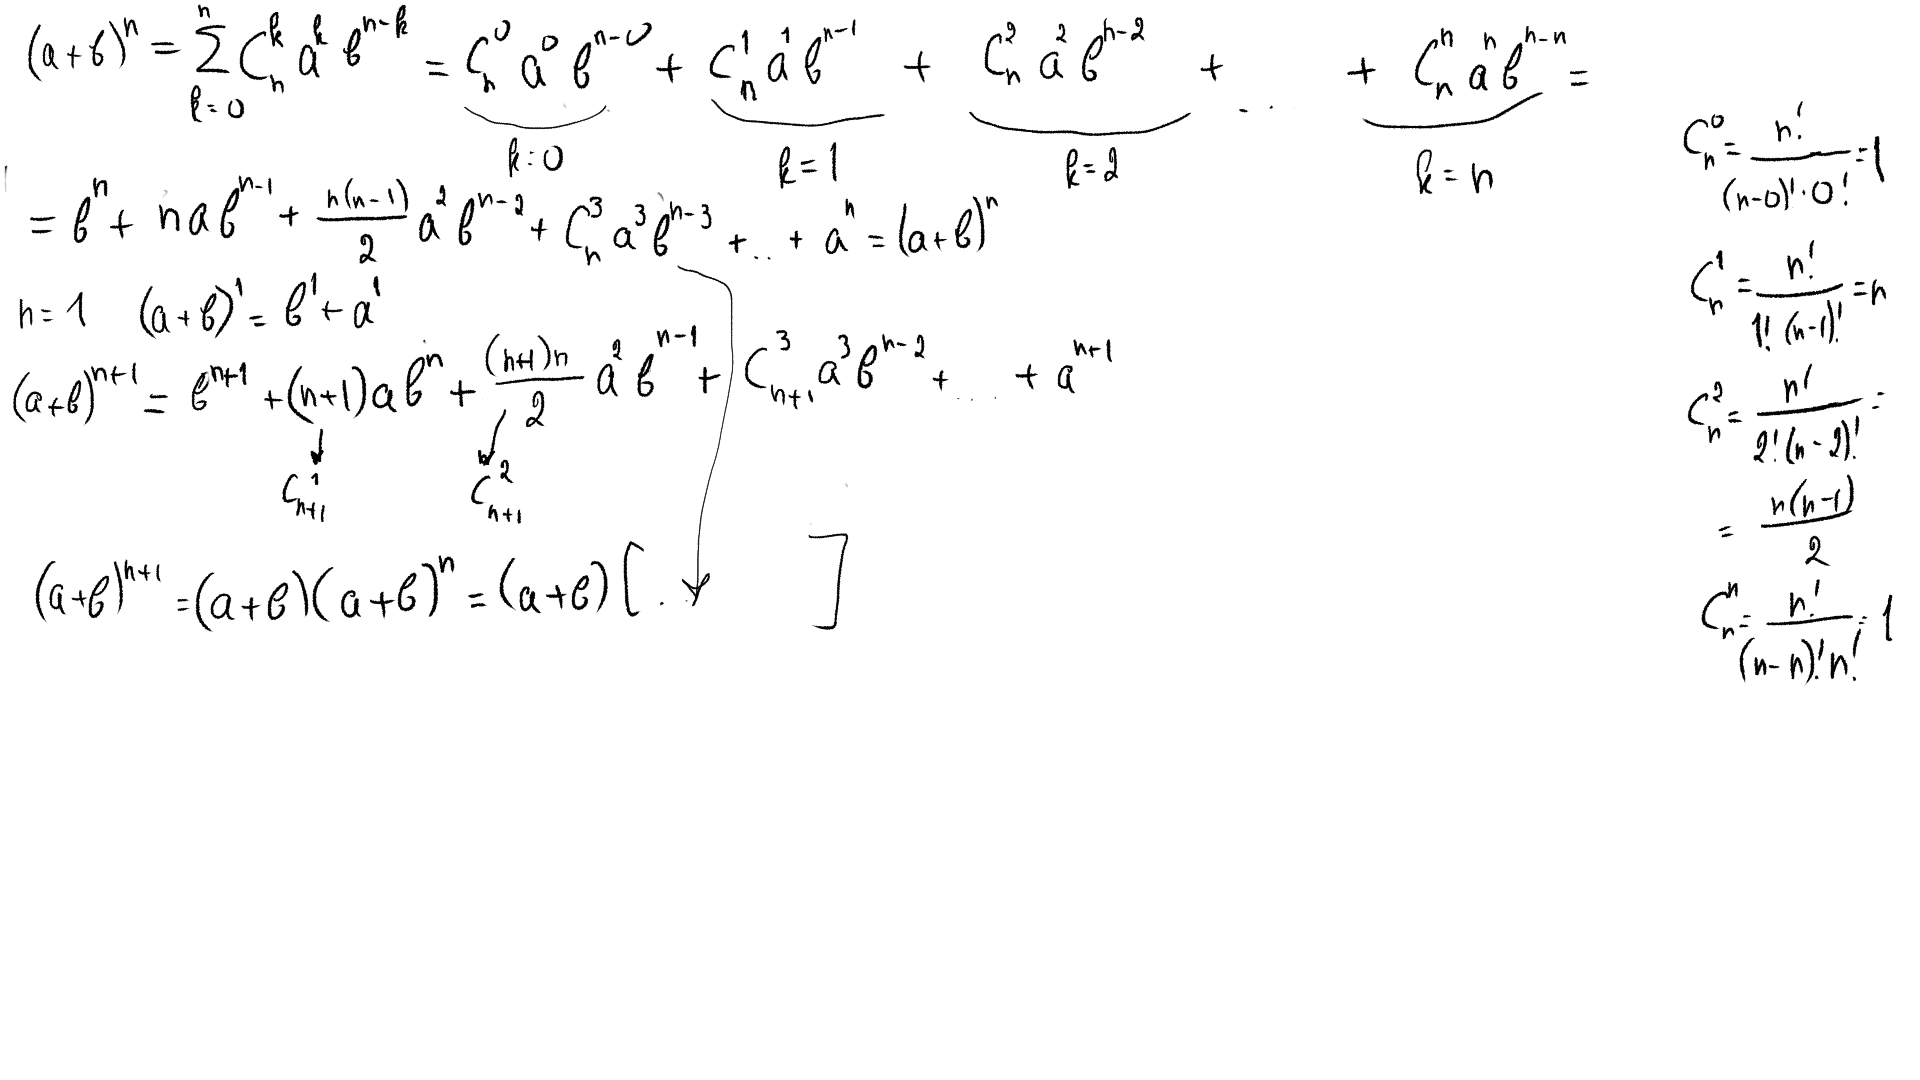 (a+b)^n = \sum_{k=0}^{n} C_n^k a^k b^{n-k} = C_n^0 a^0 b^{n-0} + C_n^1 a^1 b^{n-1} + C_n^2 a^2 b^{n-2} + ... + C_n^n a^n b^{n-n} =
k=0 k=1 k=2 k=n
= b^n + nab^{n-1} + \frac{n(n-1)}{2} a^2 b^{n-2} + C_n^3 a^3 b^{n-3} + .. + a^n = (a+b)^n
n=1 (a+b)^1 = b^1 + a^1
(a+b)^{n+1} = b^{n+1} + (n+1)ab^n + \frac{(n+1)n}{2} a^2 b^{n-1} + C_{n+1}^3 a^3 b^{n-2} + .... + a^{n+1}
C_{n+1}^1 C_{n+1}^2
(a+b)^{n+1} = (a+b)(a+b)^n = (a+b)[.. ]
C_n^0 = \frac{n!}{(n-0)! \cdot 0!} = 1
C_n^1 = \frac{n!}{1! (n-1)!} = n
C_n^2 = \frac{n!}{2! (n-2)!} =
= \frac{n(n-1)}{2}
C_n^n = \frac{n!}{(n-n)! n!} = 1